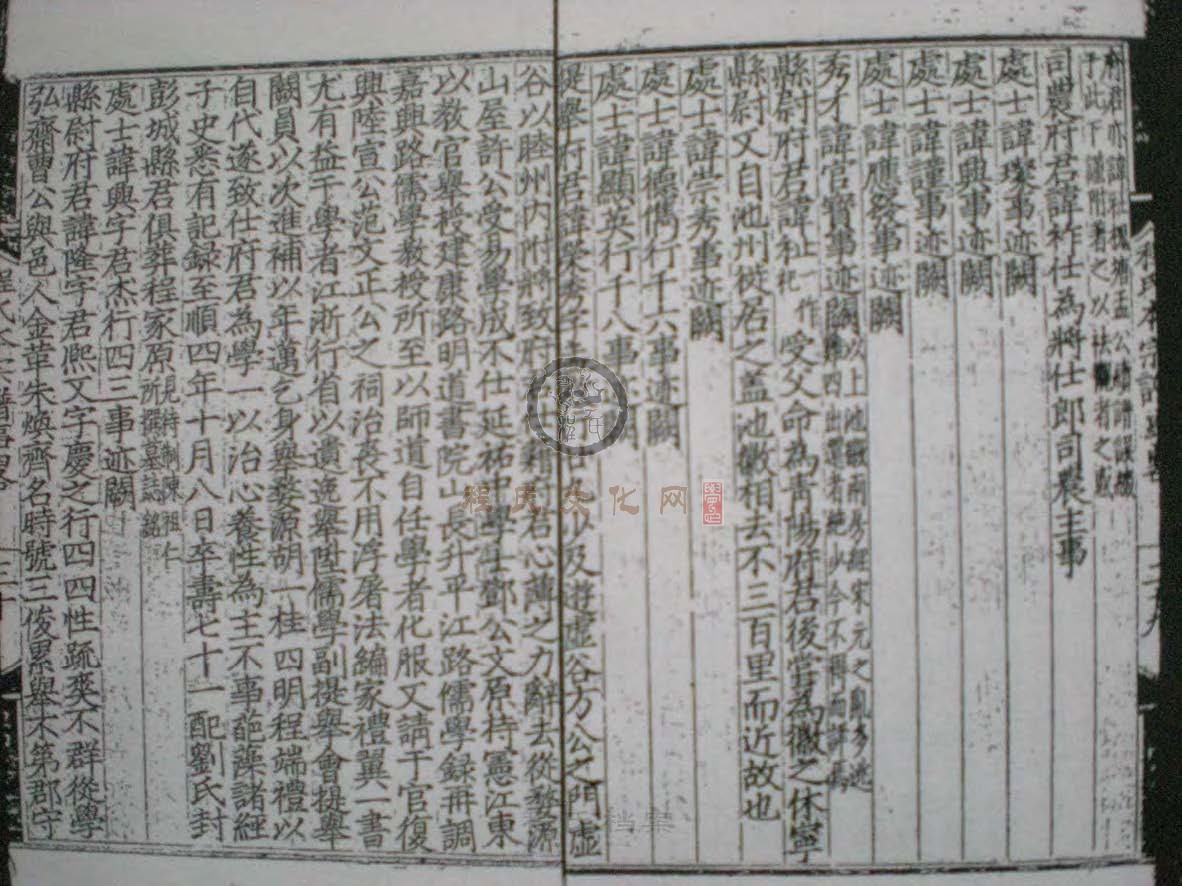 于此下謹附著之以
司農府君諱祚仕為將仕郎司農主事
處士諱璨事迹闕
處士諱興事迹闕
處士諱謹事迹闕
處士諱應發事迹闕
秀才諱官寶事迹闕
縣尉府君諱祉一作祀受父命為青陽府君後嘗為徽之休寧
縣尉又自池州徙居之蓋池徽相去不三百里而近故也
處士諱崇秀事迹闕
處士諱德儁行千六事迹闕
處士諱顯英行千八事迹闕
提舉府君諱榮秀字少及遊虛谷方公之門虛
谷以睦州内附將致府君心薄之力辭去從婺源
山屋許公受易學成不仕延祐中學士鄧公文原持憲江東
以教官舉授建康路明道書院山長升平江路儒學録再調
嘉興路儒學教授所至以師道自任學者化服又請于官復
興陸宣公范文正公之祠治喪不用浮屠法編家禮翼一書
尤有益于學者江浙行省以遺逸舉陞儒學副提舉會提舉
闕員以次進補以年邁乞身舉婺源胡一桂四明程端禮以
自代遂致仕府君為學一以治心養性為主不事葩藻諸經
子史悉有記録至順四年十月八日卒壽七十一配劉氏封
彭城縣君俱葬程家原見待制陳祖仁所撰墓誌銘
處士諱興字君杰行四三事迹闕
縣尉府君諱隆字君熙又字慶之行四四性疏爽不群從學
弘齋曹公與邑人金革朱煥齊名時號三俊累舉不第郡守
程氏文化网
档案